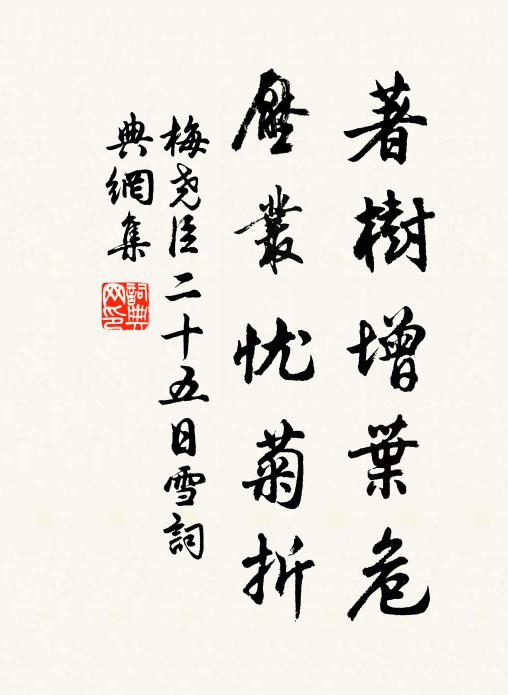 著樹增葉危
壓叢忧菊折
梅尧臣二十五日雪詞
典網集
詞典
网印